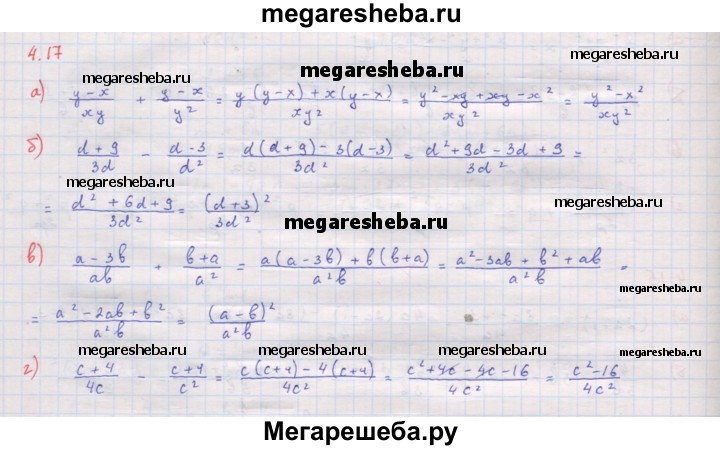 megaresheba.ru
4.17
megaresheba.ru megaresheba.ru megaresheba.ru
а) (y-x)/(xy) + (y-x)/(y²) = (y(y-x)+x(y-x))/(xy²) = (y²-xy+xy-x²)/(xy²) = (y²-x²)/(xy²)
б) (d+9)/(3d) - (d-3)/(d²) = (d(d+9)-3(d-3))/(3d²) = (d²+9d-3d+9)/(3d²) =
megaresheba.ru megaresheba.ru
= (d²+6d+9)/(3d²) = ((d+3)²)/(3d²)
megaresheba.ru
в) (a-3b)/(ab) + (b+a)/(a²) = (a(a-3b)+b(b+a))/(a²b) = (a²-3ab+b²+ab)/(a²b) =
megaresheba.ru
= (a²-2ab+b²)/(a²b) = ((a-b)²)/(a²b)
megaresheba.ru megaresheba.ru megaresheba.ru megaresheba.ru
г) (c+4)/(4c) - (c+4)/(c²) = (c(c+4)-4(c+4))/(4c²) = (c²+4c-4c-16)/(4c²) = (c²-16)/(4c²)
Мегарешеба.ру